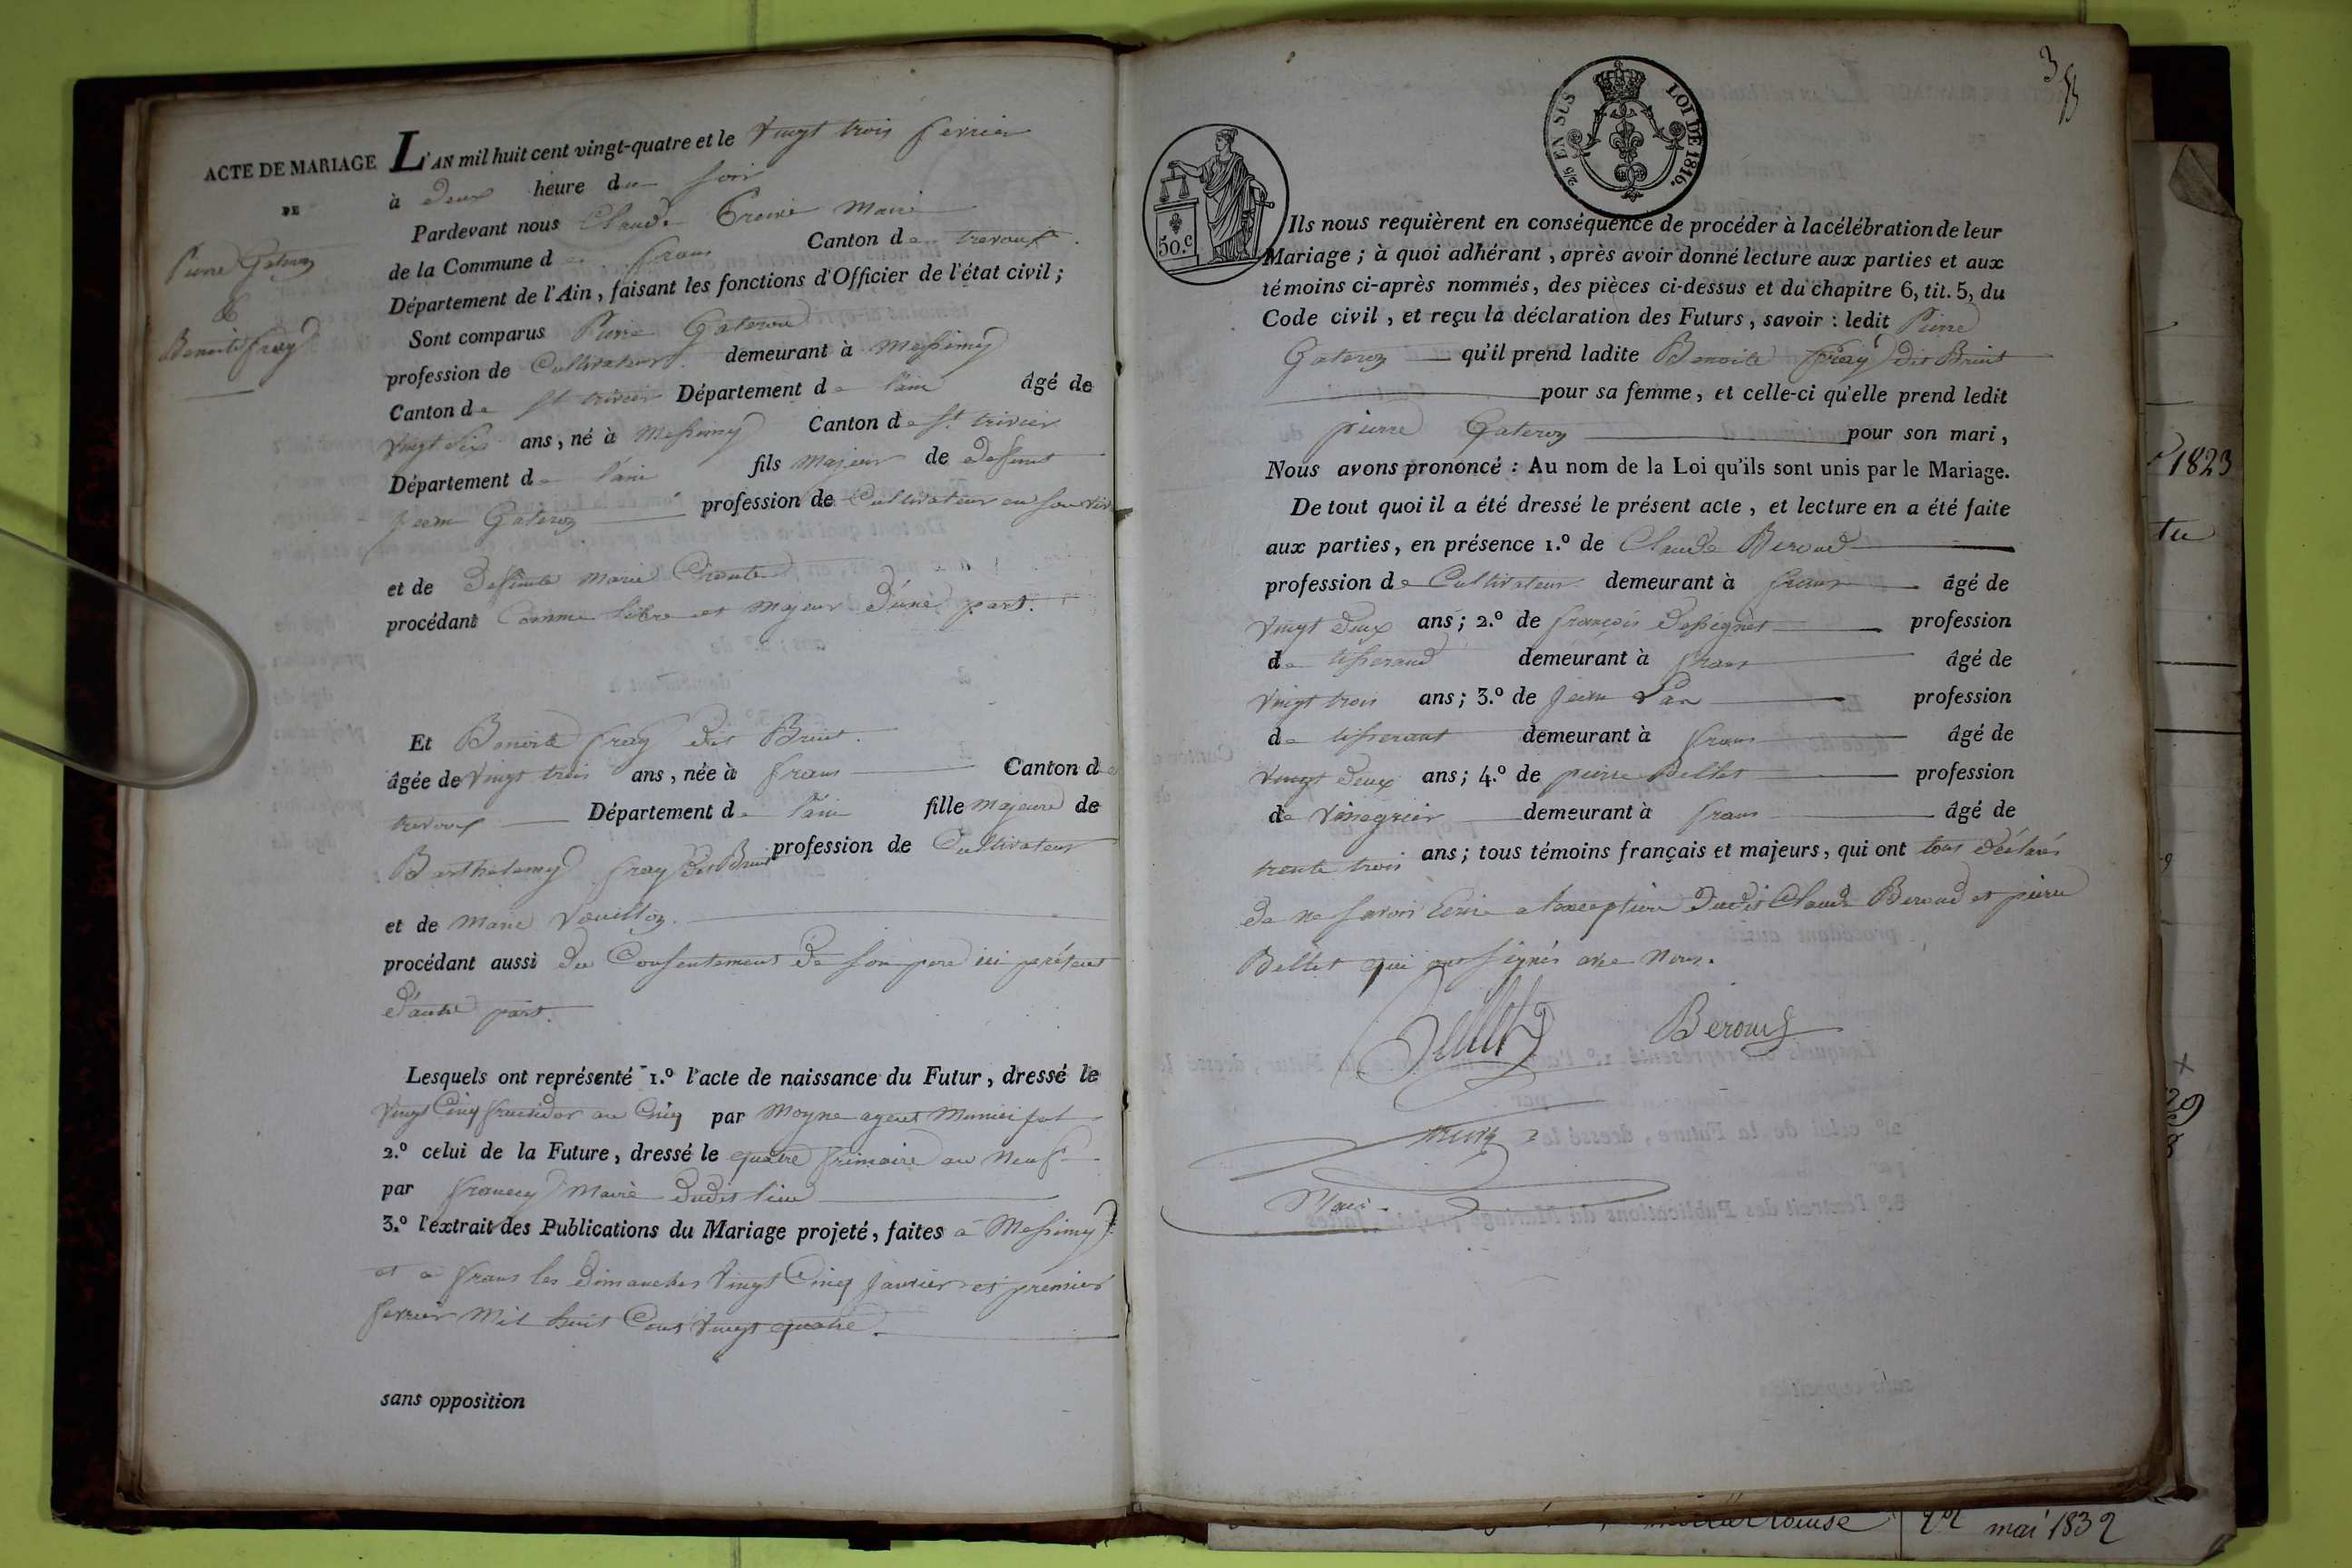 ACTE DE MARIAGE
DE
Pierre Gateron
&
Benoite fray
L'AN mil huit cent vingt-quatre et le vingt trois fevrier
à deux heure du soir
Pardevant nous Claude maire
de la Commune de frans Canton de trevoux
Département de l'Ain, faisant les fonctions d'Officier de l'état civil;
Sont comparus Pierre Gateron
profession de Cultivateur demeurant à Messimy
Canton de St trivier Département de l'ain âgé de
vingt six ans, né à Messimy Canton de St. trivier
Département de l'ain fils majeur de deffunt
jean Gateron profession de Cultivateur en son viv
et de deffunte marie
procédant Comme libre et majeur d'une part.
Et Benoite fray dit Bruit.
âgée de vingt trois ans, née à frans Canton de
trevoux Département de l'ain fille majeure de
Barthelemy fray dit Bruit profession de Cultivateur
et de marie Vouillon.
procédant aussi du Consentement de son pere ici présent
d'autre part.
Lesquels ont représenté 1.º l'acte de naissance du Futur, dressé le
vingt Cinq fructidor an Cinq par Moyne agent Municipal
2.º celui de la Future, dressé le quatre frimaire an neuf
par maire dudit lieu
3.º l'extrait des Publications du Mariage projeté, faites à Messimy
et à frans les dimanches vingt Cinq janvier et premier
fevrier mil huit Cent vingt quatre.
sans opposition
3
50.c
2/5 EN SUS
LOI DE 1816.
Ils nous requièrent en conséquence de procéder à la célébration de leur
Mariage; à quoi adhérant, après avoir donné lecture aux parties et aux
témoins ci-après nommés, des pièces ci-dessus et du chapitre 6, tit. 5, du
Code civil, et reçu la déclaration des Futurs, savoir: ledit Pierre
Gateron qu'il prend ladite Benoite fray dit Bruit
pour sa femme, et celle-ci qu'elle prend ledit
pierre Gateron pour son mari,
Nous avons prononcé: Au nom de la Loi qu'ils sont unis par le Mariage.
De tout quoi il a été dressé le présent acte, et lecture en a été faite
aux parties, en présence 1.º de Claude Beroud
profession de Cultivateur demeurant à frans âgé de
vingt deux ans; 2.º de françois profession
de tisserand demeurant à frans âgé de
vingt trois ans; 3.º de jean profession
de tisserant demeurant à frans âgé de
vingt deux ans; 4.º de pierre Bellet profession
de vinaigrier demeurant à frans âgé de
trente trois ans; tous témoins français et majeurs, qui ont tous déclarés
de ne savoir Ecrire a l'exception dudit Claude Beroud et pierre
Bellet qui ont signés avec nous.
Bellet
Beroud
Maire
1823
tu
mai 1832